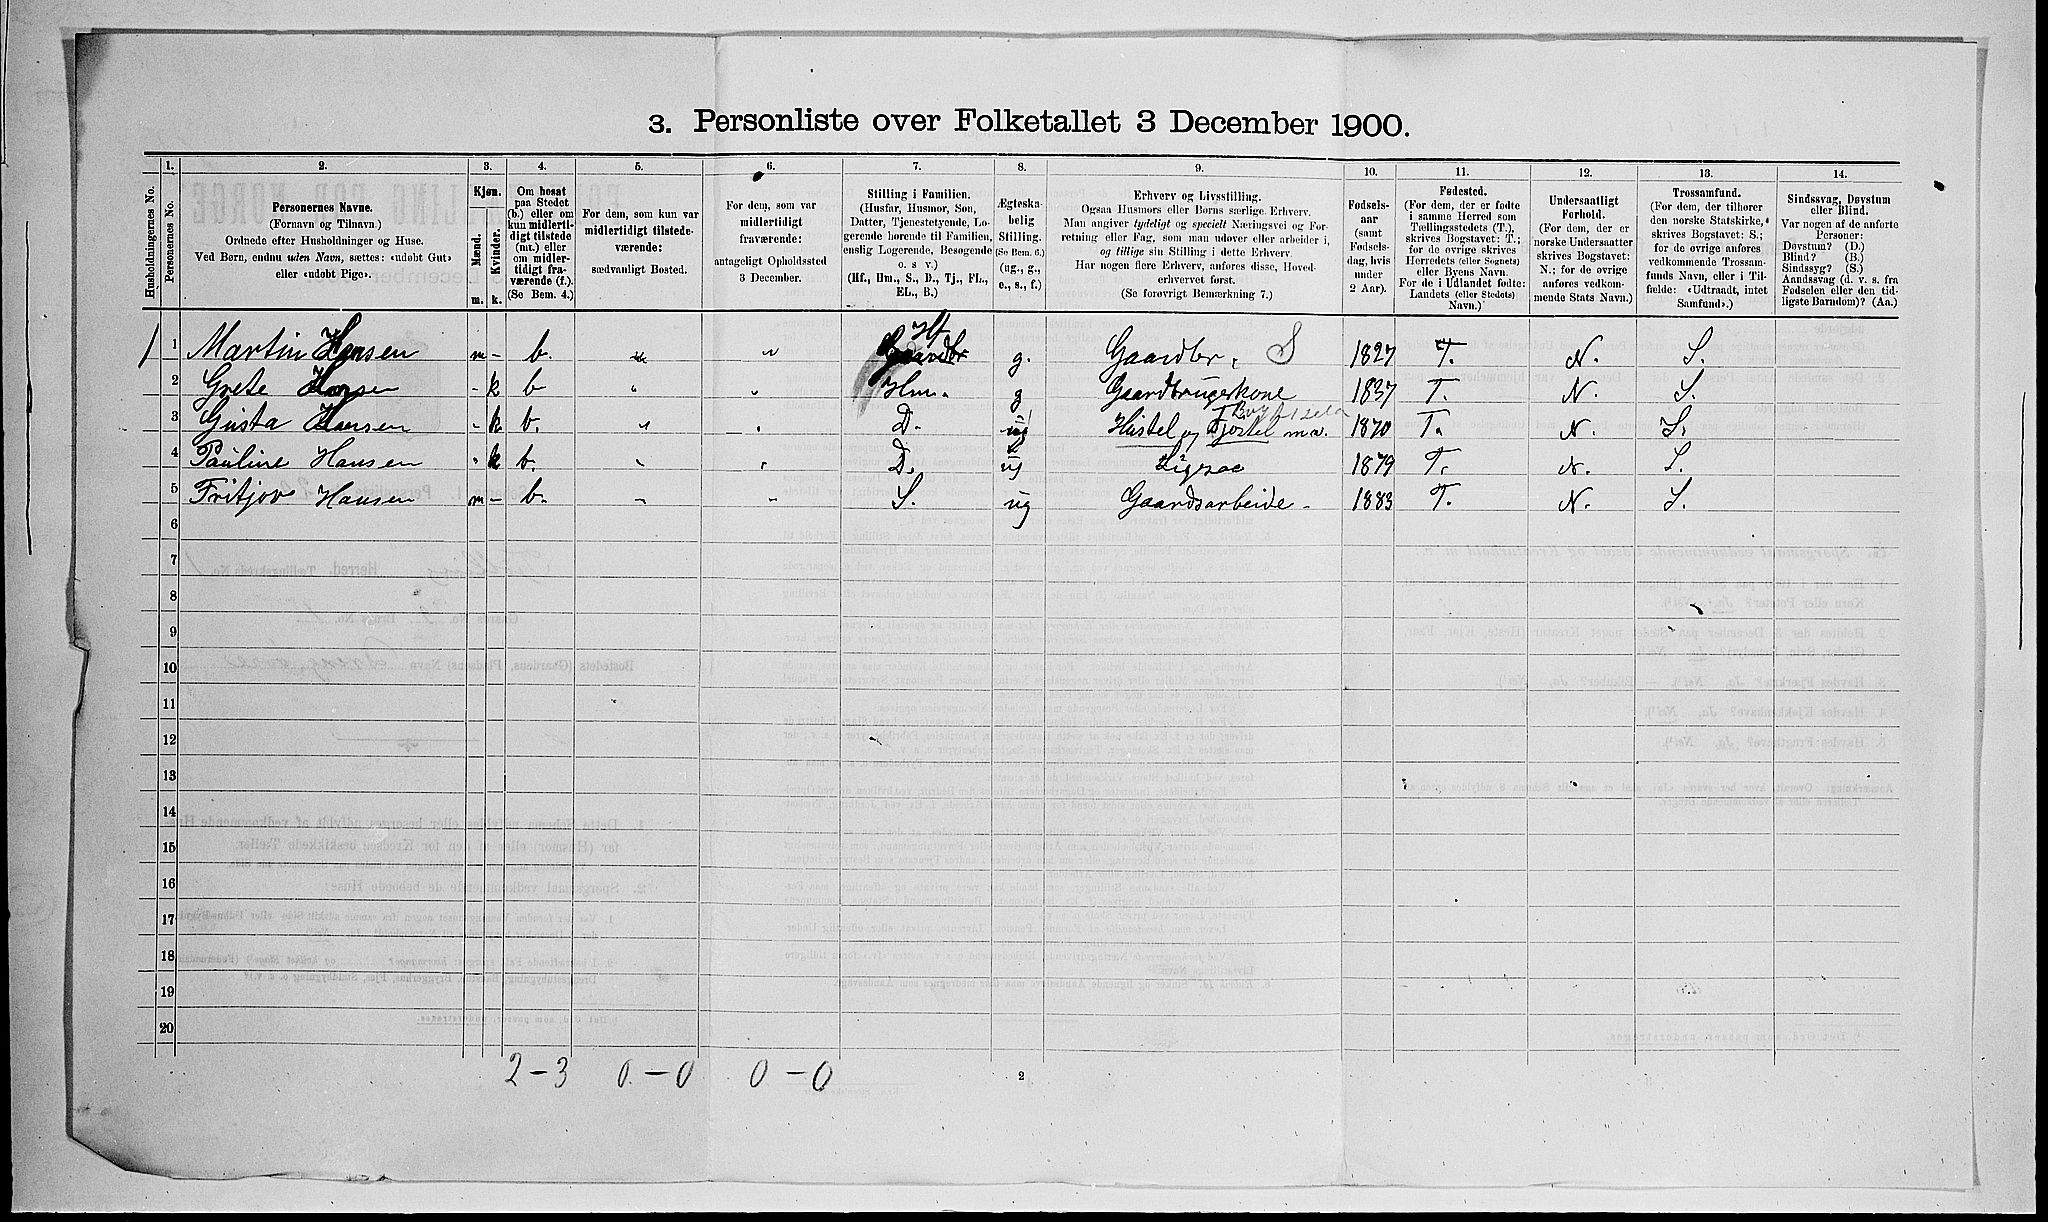 3. Personliste over Folketallet 3 December 1900.
Husholdningernes No.
1.
Personernes No.
2.
Personernes Navne.
(Fornavn og Tilnavn.)
Ordnede efter Husholdninger og Huse.
Ved Børn, endnu uden Navn, sættes: «udøbt Gut»
eller «udøbt Pige».
3.
Kjøn.
Mænd.
Kvinder.
m.
k.
4.
Om bosat
paa Stedet
(b.) eller om
kun midlerti-
digt tilstede
(mt.) eller
om midler-
tidigt fra-
værende (f.).
(Se Bem. 4.)
5.
For dem, som kun var
midlertidigt tilstede-
værende:
sædvanligt Bosted.
6.
For dem, som var
midlertidigt
fraværende:
antageligt Opholdssted
3 December.
7.
Stilling i Familien.
(Husfar, Husmor, Søn,
Datter, Tjenestetyende, Lo-
gerende hørende til Familien,
enslig Logerende, Besøgende
o. s v.)
(Hf., Hm., S., D., Tj., FL.,
EL., B.)
8.
Ægteska-
belig
Stilling.
(Se Bem. 6.)
(ug., g.,
e., s., f.)
9.
Erhverv og Livsstilling.
Ogsaa Husmors eller Børns særlige Erhverv.
Man angiver tydeligt og specielt Næringsvei og For-
retning eller Fag, som man udøver eller arbeider i,
og tillige sin Stilling i dette Erhverv.
Har nogen flere Erhverv, anføres disse, Hoved-
erhvervet først.
(Se forøvrigt Bemærkning 7.)
10.
Fødsels-
aar
(samt
Fødsels-
dag, hvis
under
2 Aar).
11.
Fødested.
(For dem, der er fødte
i samme Herred som
Tællingsstedets (T.),
skrives Bogstavet: T.;
for de øvrige skrives
Herredets (eller Sognets)
eller Byens Navn.
For de i Udlandet fødte:
Landets (eller Stedets)
Navn.)
12.
Undersaatligt
Forhold.
(For dem, der er
norske Undersaatter
skrives Bogstavet:
N.; for de øvrige
anføres vedkom-
mende Stats Navn.)
13.
Trossamfund.
(For dem, der tilhører
den norske Statskirke,
skrives Bogstavet: S.;
for de øvrige anføres
vedkommende Trossam-
funds Navn, eller i Til-
fælde: «Udtraadt, intet
Samfund».)
14.
Sindssvag, Døvstum
eller Blind.
Var nogen af de anførte
Personer:
Døvstum? (D.)
Blind? (B.)
Sindssyg? (S.)
Aandssvag (d. v. s. fra
Fødselen eller den tid-
ligste Barndom)? (Aa.)
1 1 Martin Hansen m - b. " " Hf. Gaardbr g. Gaardbr. S 1827 T. N. S.
2 Grete Hansen - k b " " Hm. g Gaardbrugerkone 1837 T. N. S.
3 Gusta Hansen - k b. " " D. ug Hustel og Fjøstel m.v. 1870 T. N. S.
4 Pauline Hansen " k b. " " D. ug Ligesaa 1879 T. N. S.
5 Fritjov Hansen m - b. " " S. ug Gaardsarbeide - 1883 T. N. S.
6
7
8
9
10
11
12
13
14
15
16
17
18
19
20
2-3 0-0 0-0
2